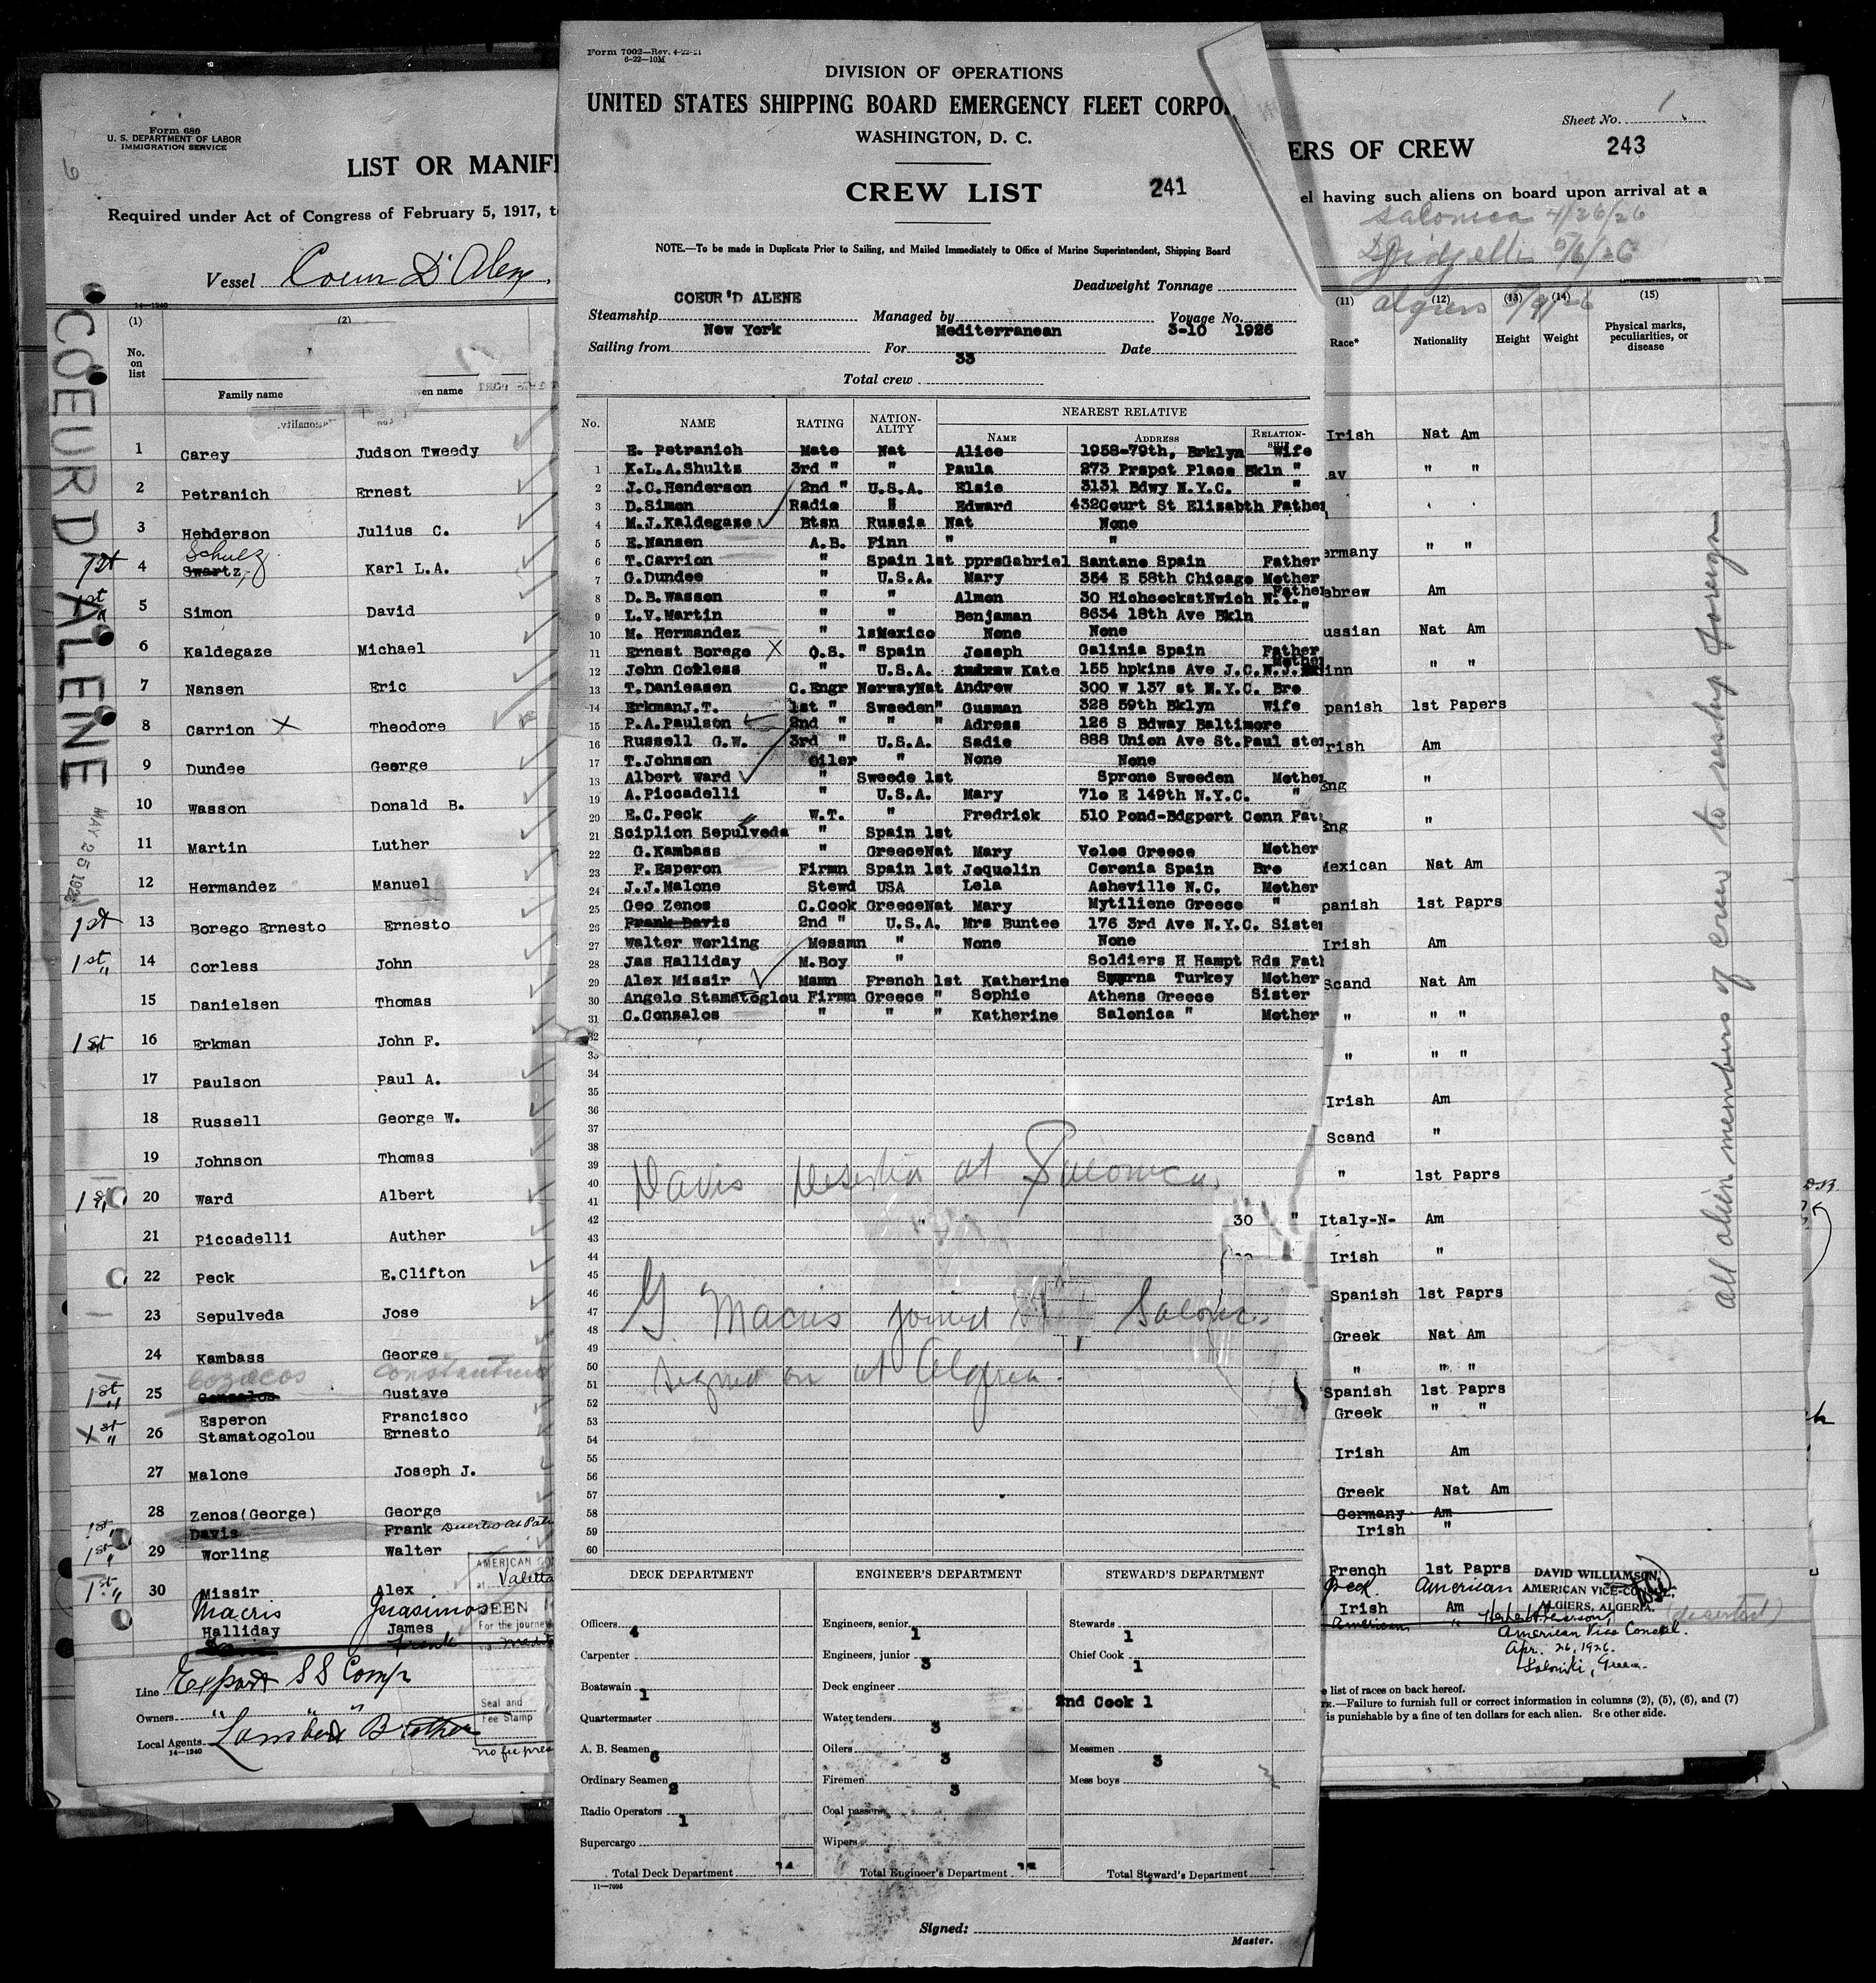 Form 680
U. S. DEPARTMENT OF LABOR
IMMIGRATION SERVICE
LIST OR MANIF
Required under Act of Congress of February 5, 1917, t
Vessel Coeur D'Alene,
14—1240
(1) (2)
No. on list
Family name en name
COEUR D ALENE
MAY 25 1926
1 Carey Judson Tweedy
2 Petranich Ernest
3 Henderson Julius C.
Schulz
1st 4 Swartz, Karl L.A.
1st 5 Simon David
6 Kaldegaze Michael
7 Nansen Eric
8 Carrion X Theodore
9 Dundee George
10 Wasson Donald B.
11 Martin Luther
12 Hermandez Manuel
1st 13 Borego Ernesto Ernesto
1st " 14 Corless John
15 Danielsen Thomas
1st 16 Erkman John F.
17 Paulson Paul A.
18 Russell George W.
19 Johnson Thomas
1st 20 Ward Albert
21 Piccadelli Auther
22 Peck E.Clifton
23 Sepulveda Jose
24 Kambass George
Constantino
1st " 25 Gonsalos Gustave
Esperon Francisco
1st " 26 Stamatogolou Ernesto
27 Malone Joseph J.
28 Zenos(George) George
1st " Davis Frank
1st " 29 Worling Walter
1st " 30 Missir Alex
Macris
Halliday James
Frank
AMERICAN CO
Valetta
SEEN
For the journey
Line Export SS Comp
Owners " " "
Local Agents Lambert Brother
14—1240
Seal and
Fee Stamp
No fee pres
Form 7002—Rev. 4-22-21
6-22—10M
DIVISION OF OPERATIONS
UNITED STATES SHIPPING BOARD EMERGENCY FLEET CORPO
WASHINGTON, D. C.
CREW LIST 241
NOTE.—To be made in Duplicate Prior to Sailing, and Mailed Immediately to Office of Marine Superintendent, Shipping Board
Deadweight Tonnage
COEUR'D ALENE
Steamship Managed by Voyage No.
New York Mediterranean 3-10 1926
Sailing from For Date
33
Total crew
No. NAME RATING NATION-ALITY NEAREST RELATIVE
NAME ADDRESS RELATION-SHIP
E. Petranich Mate Nat Alice 1958-79th, Brklyn Wife
1 K.L.A.Shultz 3rd " " Paula 273 Prspct Place Bkln "
2 J.C.Henderson 2nd " U.S.A. Elsie 3131 Bdwy N.Y.C. "
3 D.Simon Radio " Edward 432Court St Elizabth Father
4 M.J.Kaldegaze Btsn Russia Nat None
5 E.Nansen A.B. Finn " "
6 T.Carrion " Spain 1st pprsGabriel Santane Spain Father
7 G.Dundee " U.S.A. Mary 354 E 58th Chicago Mother
8 D.B.Wasson " " Almon 30 HichcockstNwich N.Y. Father
9 L.V.Martin " " Benjaman 8634 18th Ave Bkln "
10 M. Hermandez " 1sMexico None None
11 Ernest Borego X O.S. " Spain Joseph Galinia Spain Father
12 John Corless " U.S.A. Kate 155 hpkins Ave J.C.N.J. Mother
13 T.Danieasen C.Engr NorwayNat Andrew 300 W 137 st N.Y.C. Bro
14 ErkmanJ.T. 1st " Sweeden" Gusman 328 59th Bklyn Wife
15 P.A.Paulson 2nd " " " Adress 126 S Bdway Baltimore
16 Russell G.W. 3rd " U.S.A. Sadie 888 Union Ave St.Paul ster
17 T.Johnson Oiler " None None
13 Albert Ward " Sweede 1st Sprone Sweeden Mother
19 A.Piccadelli " U.S.A. Mary 71o E 149th N.Y.C. "
20 E.C.Peck W.T. " Fredrick 510 Pond-Bdgport Conn Fat
21 Sciplion Sepulveda " Spain 1st
22 G.Kambass " GreeceNat Mary Volos Greece Mother
23 F.Esperon Firmn Spain 1st Joquolin Ceronia Spain Bro
24 J.J.Malone Stewd USA Lela Asheville N.C. Mother
25 Geo Zenos C.Cook GreeceNat Mary Mytiliene Greece "
26 Frank Davis 2nd " U.S.A. Mrs Buntee 176 3rd Ave N.Y.C. Sister
27 Walter Worling Messmn " None None
28 Jas Halliday M.Boy " Soldiers H Hampt Rds Fath
29 Alex Missir Mamn French 1st Katherine Smyrna Turkey Mother
30 Angelo Stamatoglou Firmn Greece " Sophie Athens Greece Sister
31 C.Consalos " " " Katherine Salonica " Mother
32
33
34
35
36
37
38
39
40 Davis Deserted at Salonica
41
42 " 30 "
43
44
45
46
47 G. Macris joined Salonica
48
49
50
51 Signed on at Algiers.
52
53
54
55
56
57
58
59
60
DECK DEPARTMENT ENGINEER'S DEPARTMENT STEWARD'S DEPARTMENT
Officers 4 Engineers, senior 1 Stewards 1
Carpenter Engineers, junior 3 Chief Cook 1
Boatswain 1 Deck engineer 2nd Cook 1
Quartermaster Water tenders 3
A. B. Seamen 6 Oilers 3 Messmen 3
Ordinary Seamen 2 Firemen 3 Mess boys
Radio Operators 1 Coal passers
Supercargo Wipers
Total Deck Department 14 Total Engineer's Department Total Steward's Department
11—7095
Signed:
Master.
Sheet No. 1
ERS OF CREW 243
el having such aliens on board upon arrival at a
Salonica 4/26/26
Djidjelli 5/6/26
Algiers 5/9/26
(11) (12) (13) (14) (15)
Race* Nationality Height Weight Physical marks, peculiarities, or disease
Irish Nat Am
av " "
ermany " "
ebrew Am
ussian Nat Am
inn " "
panish 1st Papers
rish Am
ng "
ng "
Mexican Nat Am
panish 1st Paprs
Irish Am
Scand Nat Am
" " "
" " "
Irish Am
Scand "
" 1st Paprs
Italy-N- Am
Irish "
Spanish 1st Paprs
Greek Nat Am
" " "
Spanish 1st Paprs
Greek " "
Irish Am
Greek Nat Am
Germany Am
Irish "
French 1st Paprs
Greek American
Irish Am
American " (deserted)
DAVID WILLIAMSON,
AMERICAN VICE-CONSUL
ALGIERS, ALGERIA.
American Vice Consul.
Apr. 26, 1926.
Saloniki, Greece.
e list of races on back hereof.
TE.—Failure to furnish full or correct information in columns (2), (5), (6), and (7)
is punishable by a fine of ten dollars for each alien. See other side.
All alien members of crew to reship foreign